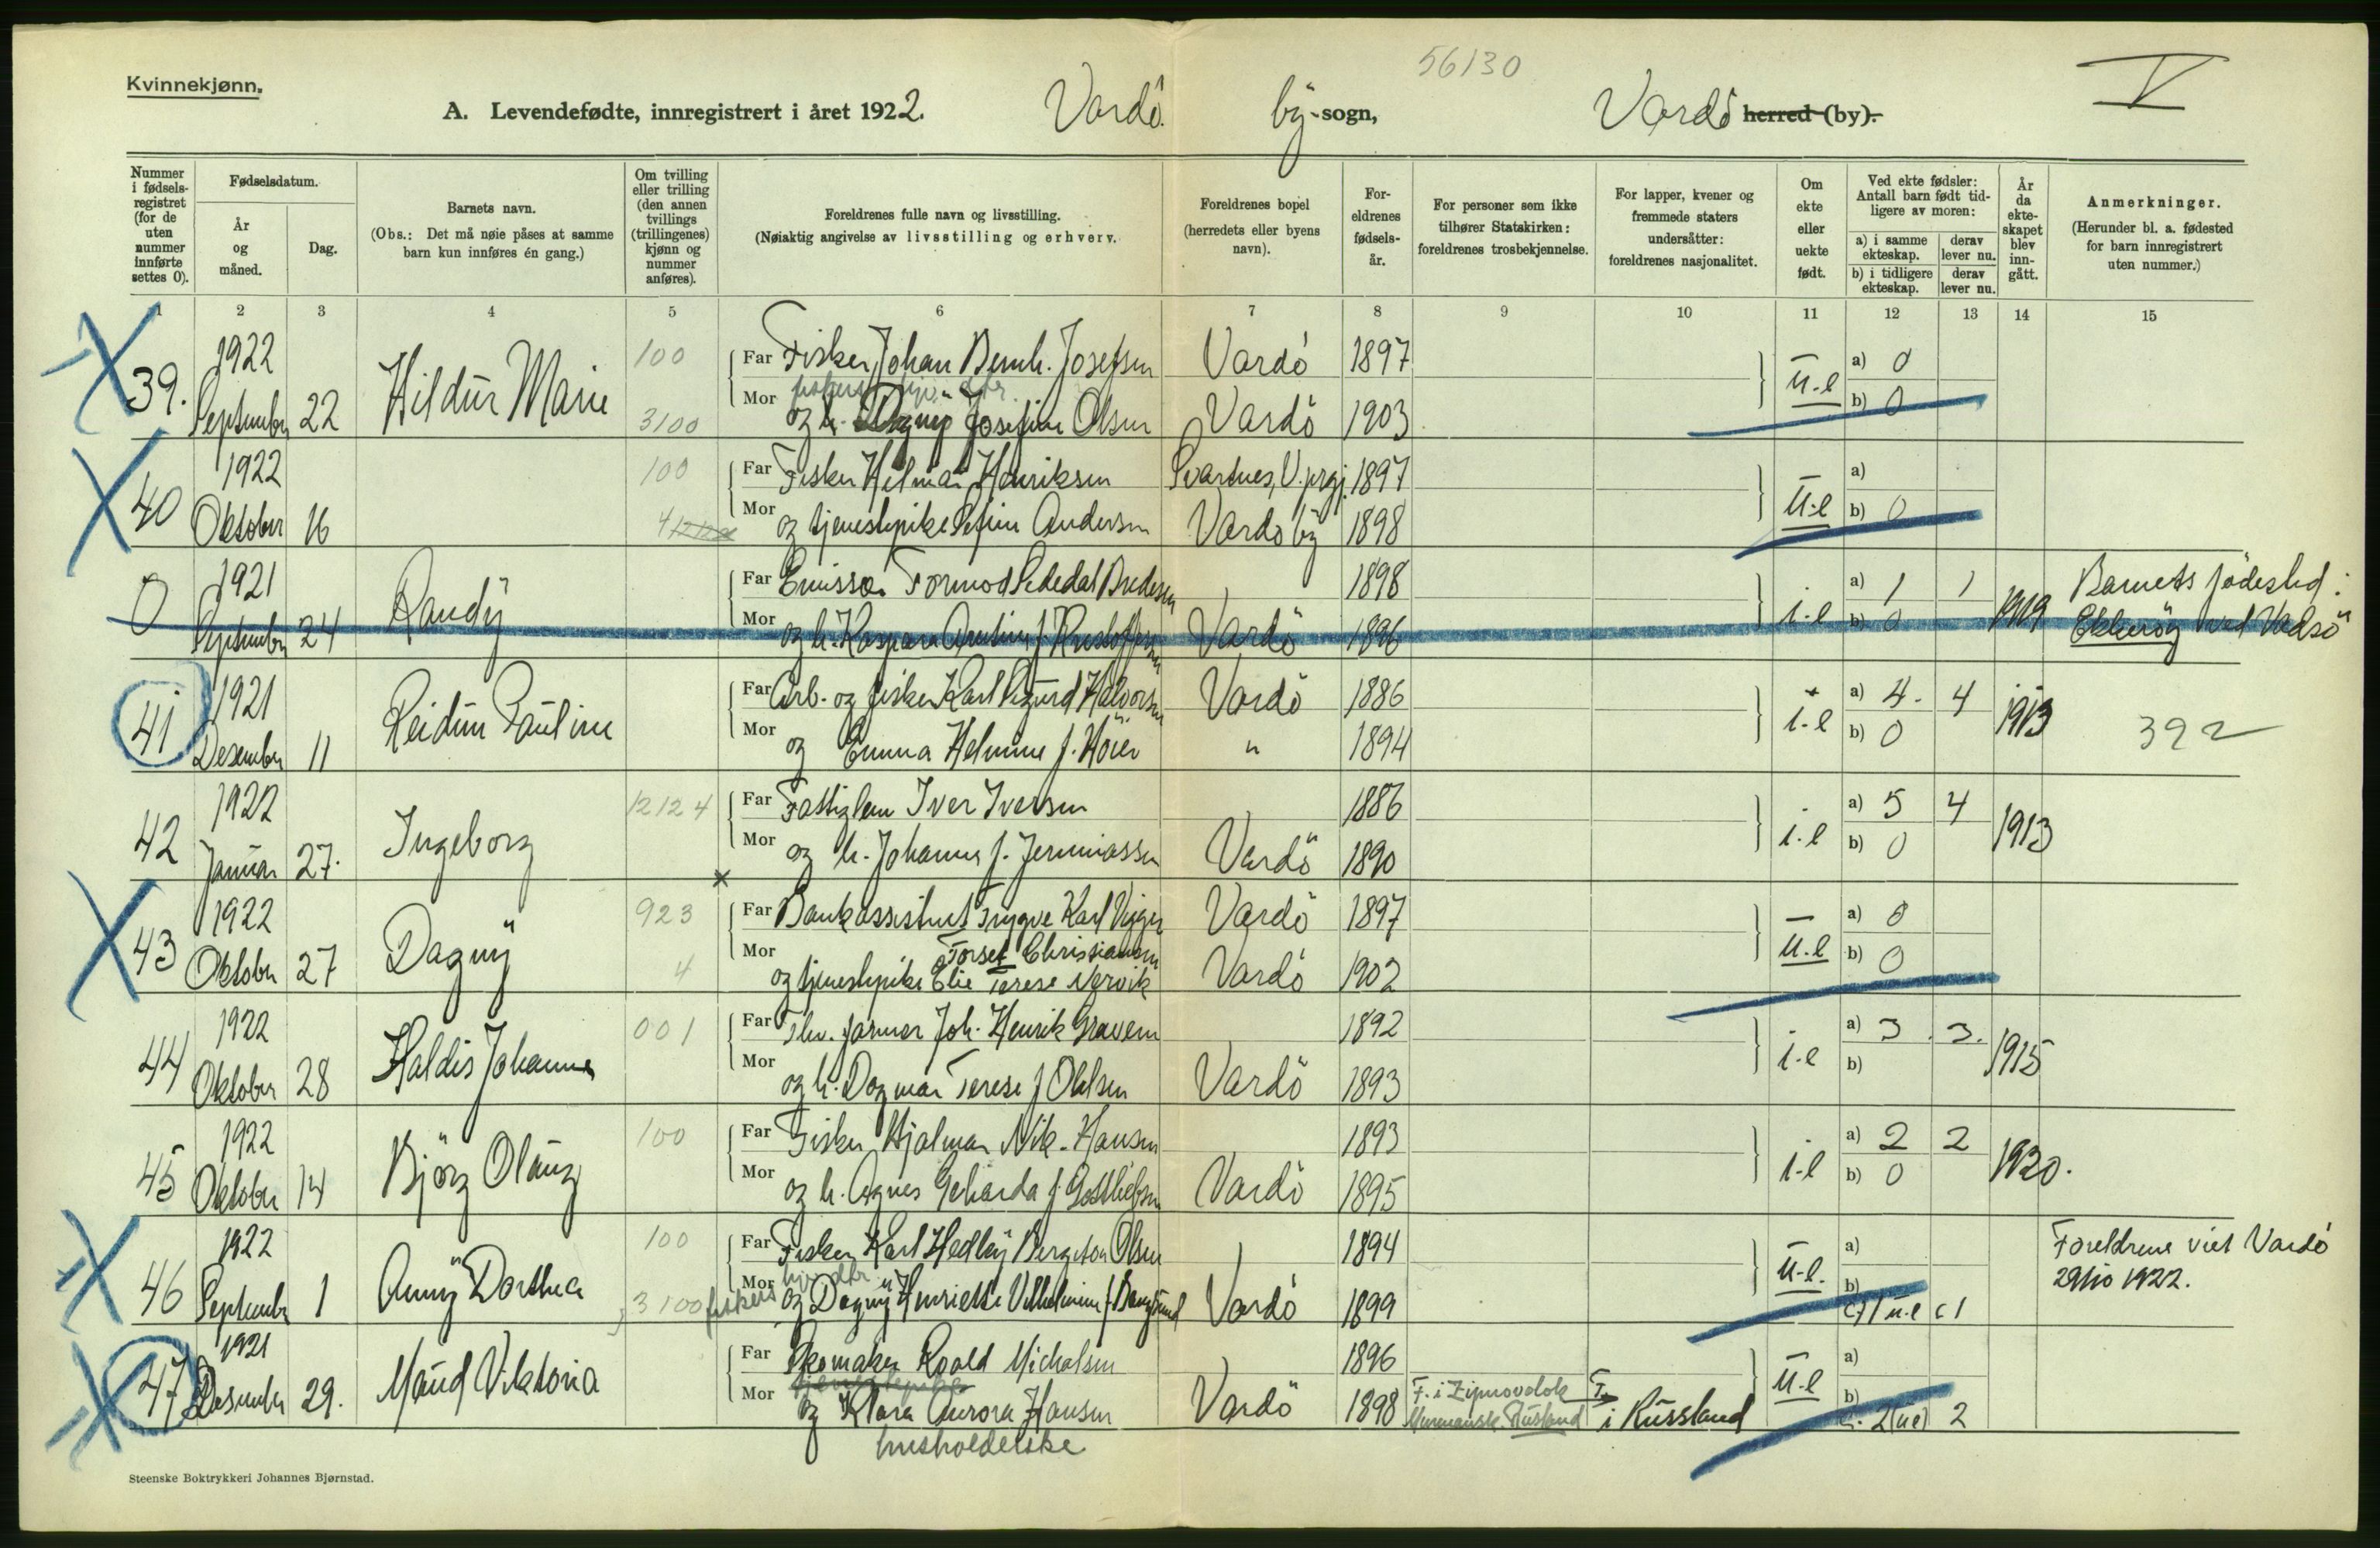 56130
V
Kvinnekjønn.
A. Levendefødte, innregistrert i året 1922. Vardö by-sogn, Vardö herred (by).
Nummer i fødsels-registret (for de uten nummer innførte settes 0).
Fødselsdatum.
År og måned.
Dag.
Barnets navn.
(Obs.: Det må nøie påses at samme barn kun innføres én gang.)
Om tvilling eller trilling (den annen tvillings (trillingenes) kjønn og nummer anføres).
Foreldrenes fulle navn og livsstilling.
(Nøiaktig angivelse av livsstilling og erhverv.
Foreldrenes bopel (herredets eller byens navn).
For-eldrenes fødsels-år.
For personer som ikke tilhører Statskirken: foreldrenes trosbekjennelse.
For lapper, kvener og fremmede staters undersåtter: foreldrenes nasjonalitet.
Om ekte eller uekte født.
Ved ekte fødsler: Antall barn født tid-ligere av moren:
a) i samme ekteskap.
derav lever nu.
b) i tidligere ekteskap.
derav lever nu.
År da ekte-skapet blev inn-gått.
Anmerkninger.
(Herunder bl. a. fødested for barn innregistrert uten nummer.)
1 2 3 4 5 6 7 8 9 10 11 12 13 14 15
1922 100 Far Fisker Johan Bernh. Josefsen Vardö 1897 a) 0
39. September 22 Hildur Marie 3100 Mor og Dagny Josefine Olsen Vardö 1903 u-e b) 0
1922 100 Far Fisker Hilmar Henriksen Svartnes, V. prgj. 1897 a)
40 Oktober 16 4 Mor og tjenestepike Sefine Andersen Vardö by 1898 u-e b) 0
1921 Far Tormod Bredesen 1898 a) 1 1 Barnets födested:
0 September 24 Randy Mor og h. Vardö 1896 i-e b) 0 1919 Ekkeröy ved Vadsö
1921 Far Arb. og fisker Karl Sigurd Halvorsen Vardö 1886 a) 4. 4
41 Desember 11 Reidun Pauline Mor og Emma Helmine f. Höier " 1894 i-e b) 0 1913 392
1922 12124 Far Fattiglem Iver Iversen 1886 a) 5 4
42 Januar 27. Ingeborg Mor og h. Johanne f. Jeremiassen Vardö 1890 i.e b) 0 1913
1922 923 Far Bankassistent Trygve Karl Viggo Vardö 1897 a) 0
Torset Christiansen
43 Oktober 27 Dagny 4 Mor og tjenestepike Elie Terese Nervik Vardö 1902 u.e b) 0
1922 001 Far Joh. Henrik Gravem 1892 a) 3 3.
44 Oktober 28 Haldis Johanne Mor og h. Dagmar Terese f Olsen Vardö 1893 i-e b) 1915
1922 100 Far Fisker Hjalmar Nik. Hansen 1893 a) 2 2
45 Oktober 14 Björg Olaug Mor og h. Agnes Geharda f. Gottliebsen Vardö 1895 i-e b) 0 1920.
1922 100 Far Fisker Karl Hedley Bergeton Olsen 1894 a) Foreldrene viet Vardö
46 September 1 Anny Dorthea 3100 fiskers Mor og Dagny Henriette Vilhelmine Vardö 1899 u-e. b) 29/10 1922.
c) 1 u-e c 1
1921 Far Skomaker Roald Michalsen 1896 a)
47 Desember 29. Maud Viktoria Mor tjenestepike og Klara Aurora Hansen Vardö 1898 F. i Murmansk. Rusland F. i Russland u-e b)
c. 2 (ue) 2
husholderske
Steenske Boktrykkeri Johannes Bjørnstad.